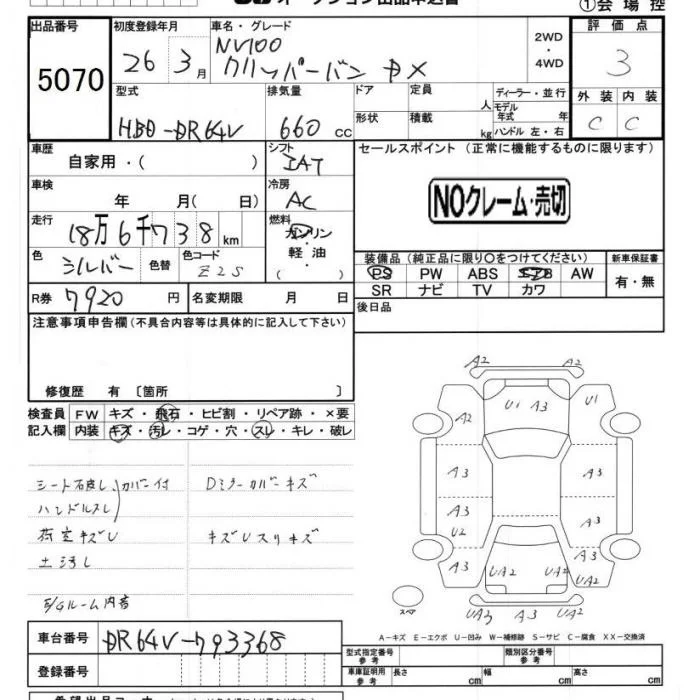 オークション出品申込書
①会場控
出品番号 初度登録年月 車名・グレード 評価点
5070 26年 3月 NV100 クリッパーバン DX 2WD・4WD 3
型式 排気量 ドア 定員 人 ディーラー・並行 外装 内装
HBD-DR64V 660cc 形状 積載 kg モデル年式 年 ハンドル 左・右 C C
車歴 シフト セールスポイント (正常に機能するものに限ります)
自家用・( ) IAT
車検 冷房 NOクレーム・売切
年 月( 日) AC
走行 燃料
18万6千738km ガソリン
色 シルバー 色替 色コード Z2S 軽油 ( )
装備品(純正品に限り○をつけてください) 新車保証書
PS PW ABS エアB AW 有・無
SR ナビ TV カワ
R券 7920円 名変期限 月 日 後日品
注意事項申告欄(不具合内容等は具体的に記入して下さい)
修復歴 有 〔箇所 〕
検査員 FW キズ・飛石・ヒビ割・リペア跡・×要
記入欄 内装 キズ・汚レ・コゲ・穴・スレ・キレ・破レ
シート石皮し カバー付 Dミラーカバーキズ
ハンドルスレ
荷室キズU キズUスリキズ
土汚し
E/Gルーム内音
A2 A2
A2 U1 A3 U1
A3 A3
A3 A3
U2
A3 UA2 UA2 A3 UA2
スペア UA3 A3 UA2
A-キズ E-エクボ U-凹み W-補修跡 S-サビ C-腐食 XX-交換済
車台番号 DR64V-793368
型式指定番号 参考 類別区分番号 参考
登録番号 車庫証明用 参考 長さ cm 幅 cm 高さ cm
希望出品コーナー